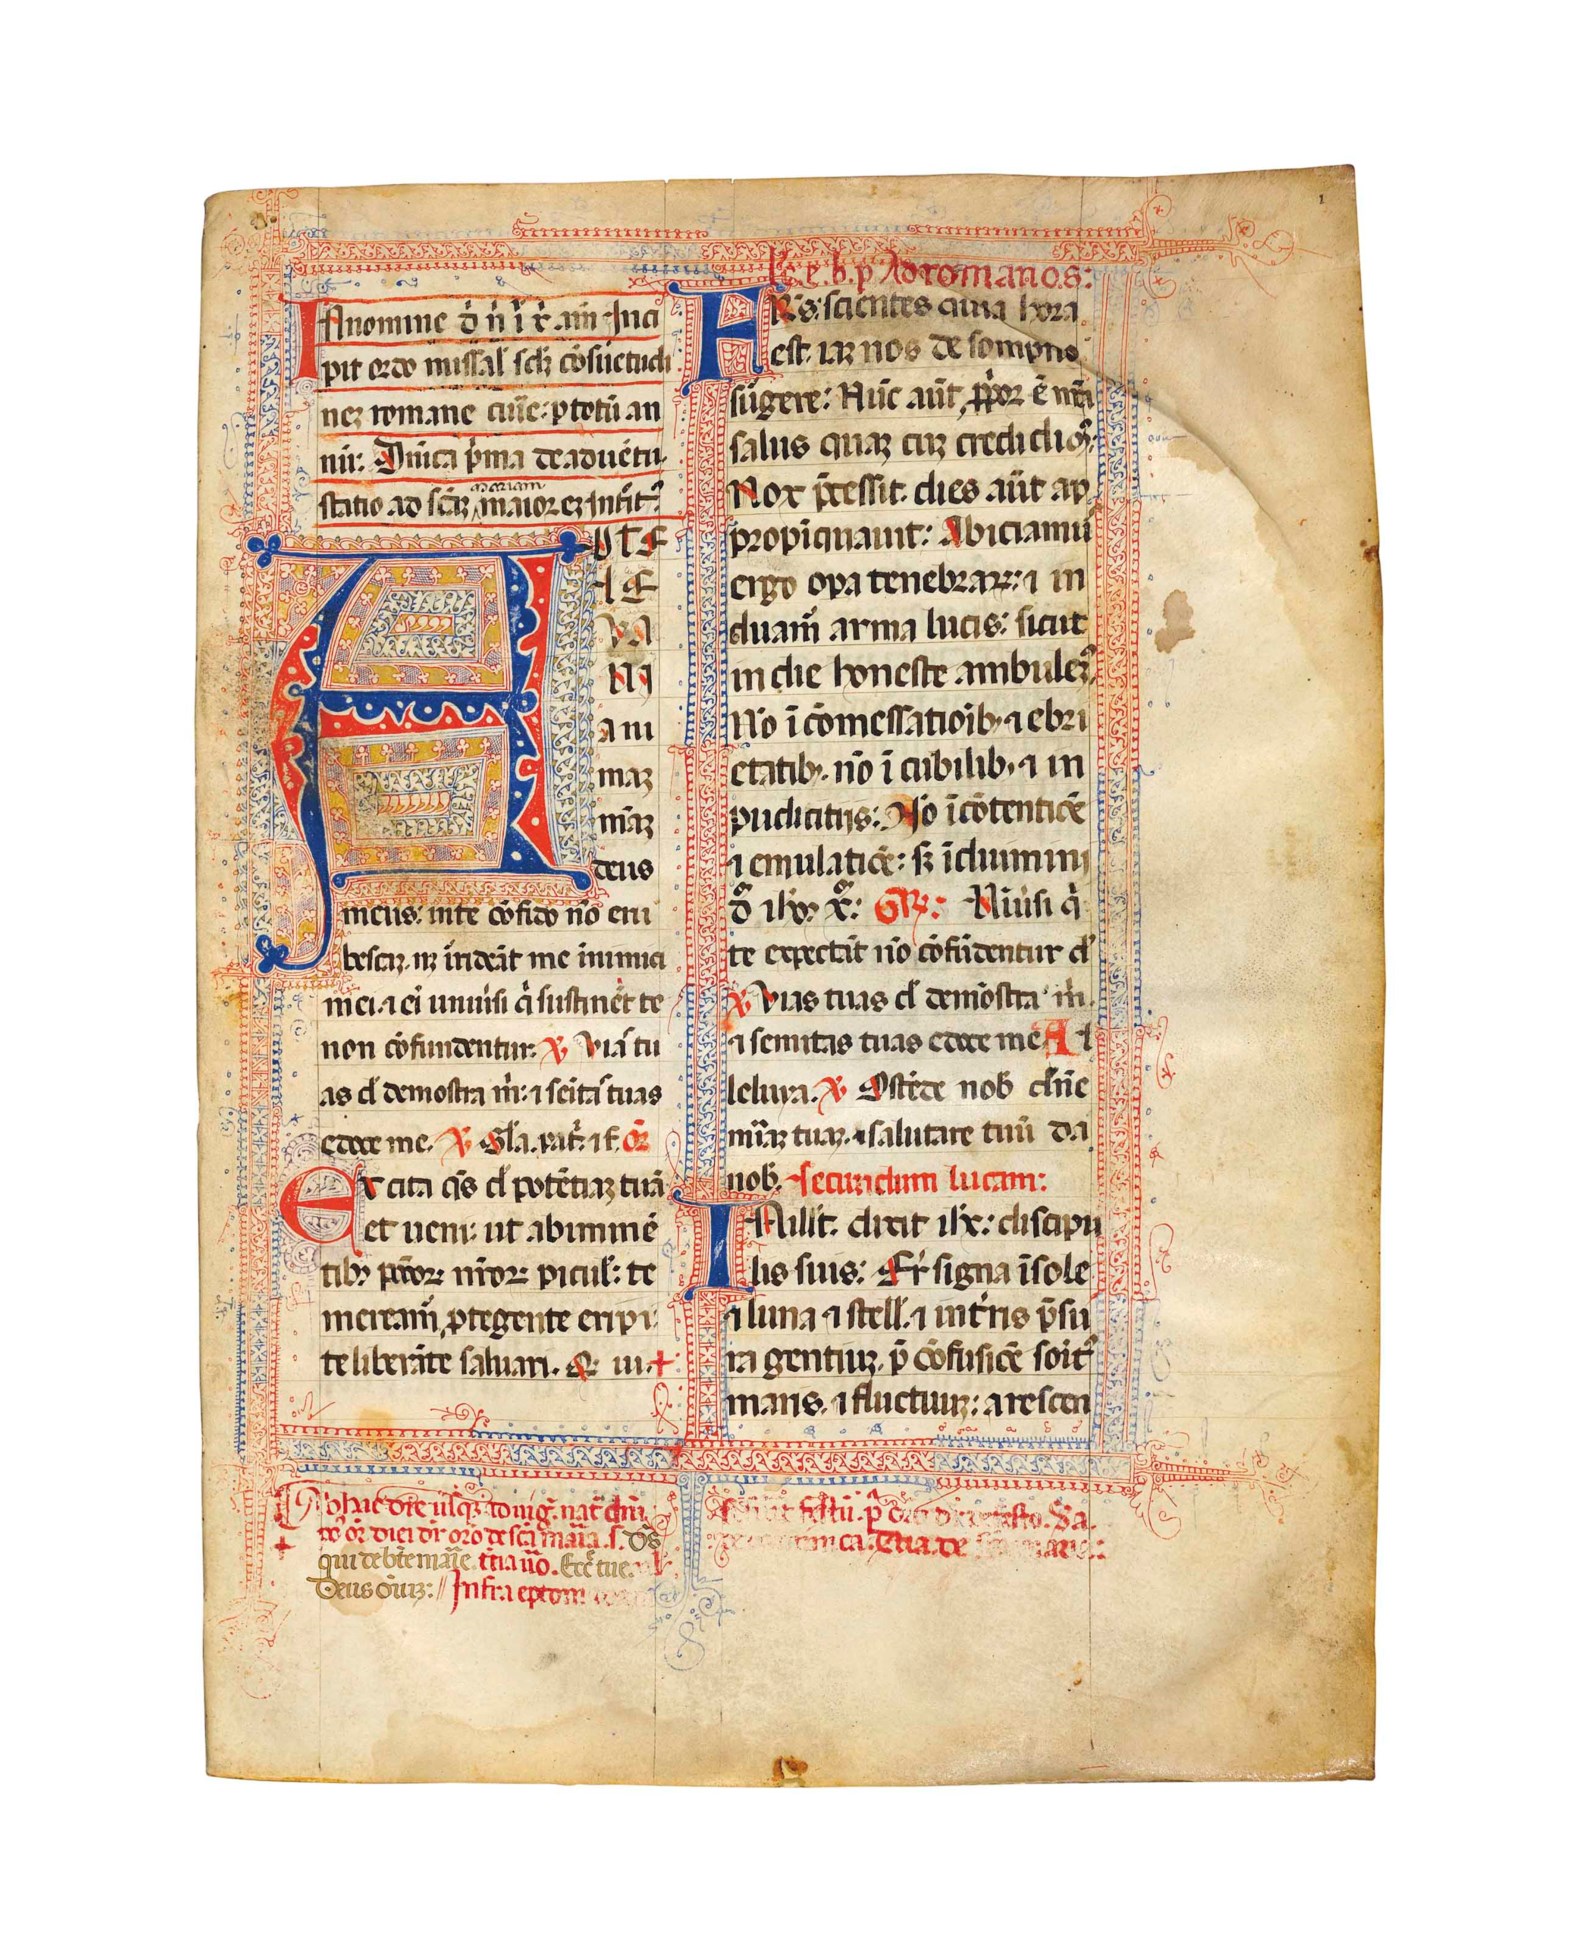 In nomine d̄ n̄ ī x̄. am̄ Inci
pit ordo missal̄ sc̄ꝫ cōsuetudi
neꝫ romane curie: p totū an
nū: Dn̄ica p̄ma de aduētu.
statio ad sc̄aꝫ mariam maioreꝫ Intͥt᷒
AD TE
LE
VA
VI
ani
maꝫ
m̄aꝫ
deus
meus: in te cōfido nō eru
bescaꝫ. nꝫ irrideāt me inimici
mei. ⁊ ei uniūsi q̄ sustinēt te
non cōfundentur. ℣ Viā tu
as d̄ demōstra m̄: ⁊ seītā tuas
edoce me. ℣ Gl̄a. pat̄. ⁊ f. Or̄
Excita q̄s d̄ potētiaꝫ tuā
et ueni: ut ab imminē
tibꝫ pc̄c̄oꝝ nr̄oꝝ picul̄: te
meream̄ ꝓtegente eripi
te liberāte saluari. Q. ui. +
Lc̄. e. b. p. Ad romanos:
FR̄s: scientes quia hora
est. iaꝫ nos de sompno
sūgere: Nūc aūt ꝓp̄or ē nr̄a
salus quaꝫ cuꝫ credidim᷒:
Nox p̄cessit. dies aūt ap
propīquauit: Abiciamu᷒
ergo opa tenebraꝝ: ⁊ in
duam̄ arma lucis: sicut
in die honeste ambulem᷒
Nō ī cōmessatiōibꝫ ⁊ ebri
etatibꝫ. nō ī cubilibꝫ. ⁊ in
pudicitiis: Nō ī cōtentiōe
⁊ emulatiōe: sꝫ īduimini
d̄ ihꝫ x̄: GR̄: Uniūsi q̄
te expectāt nō cōfūdentur d̄
℣ Vias tuas d̄ demōstra m̄.
⁊ semitas tuas edoce me Al
leluya. ℣ Ostēde nob̄ dn̄e
mi᷒aꝫ tuaꝫ. ⁊ salutare tuū da
nob̄. Secundum lucam:
IN ill̄t. dixit ih̄c: discipu
lis suis: Er̄t signa ī sole
⁊ luna ⁊ stell̄. ⁊ int̄ris p̄su
ra gentiuꝫ. p̄ cōfusiōe soīt᷒
maris. ⁊ fluctuuꝫ: arescen
hac die usqꝫ
qui de
Deus ōniuꝫ: // Infra